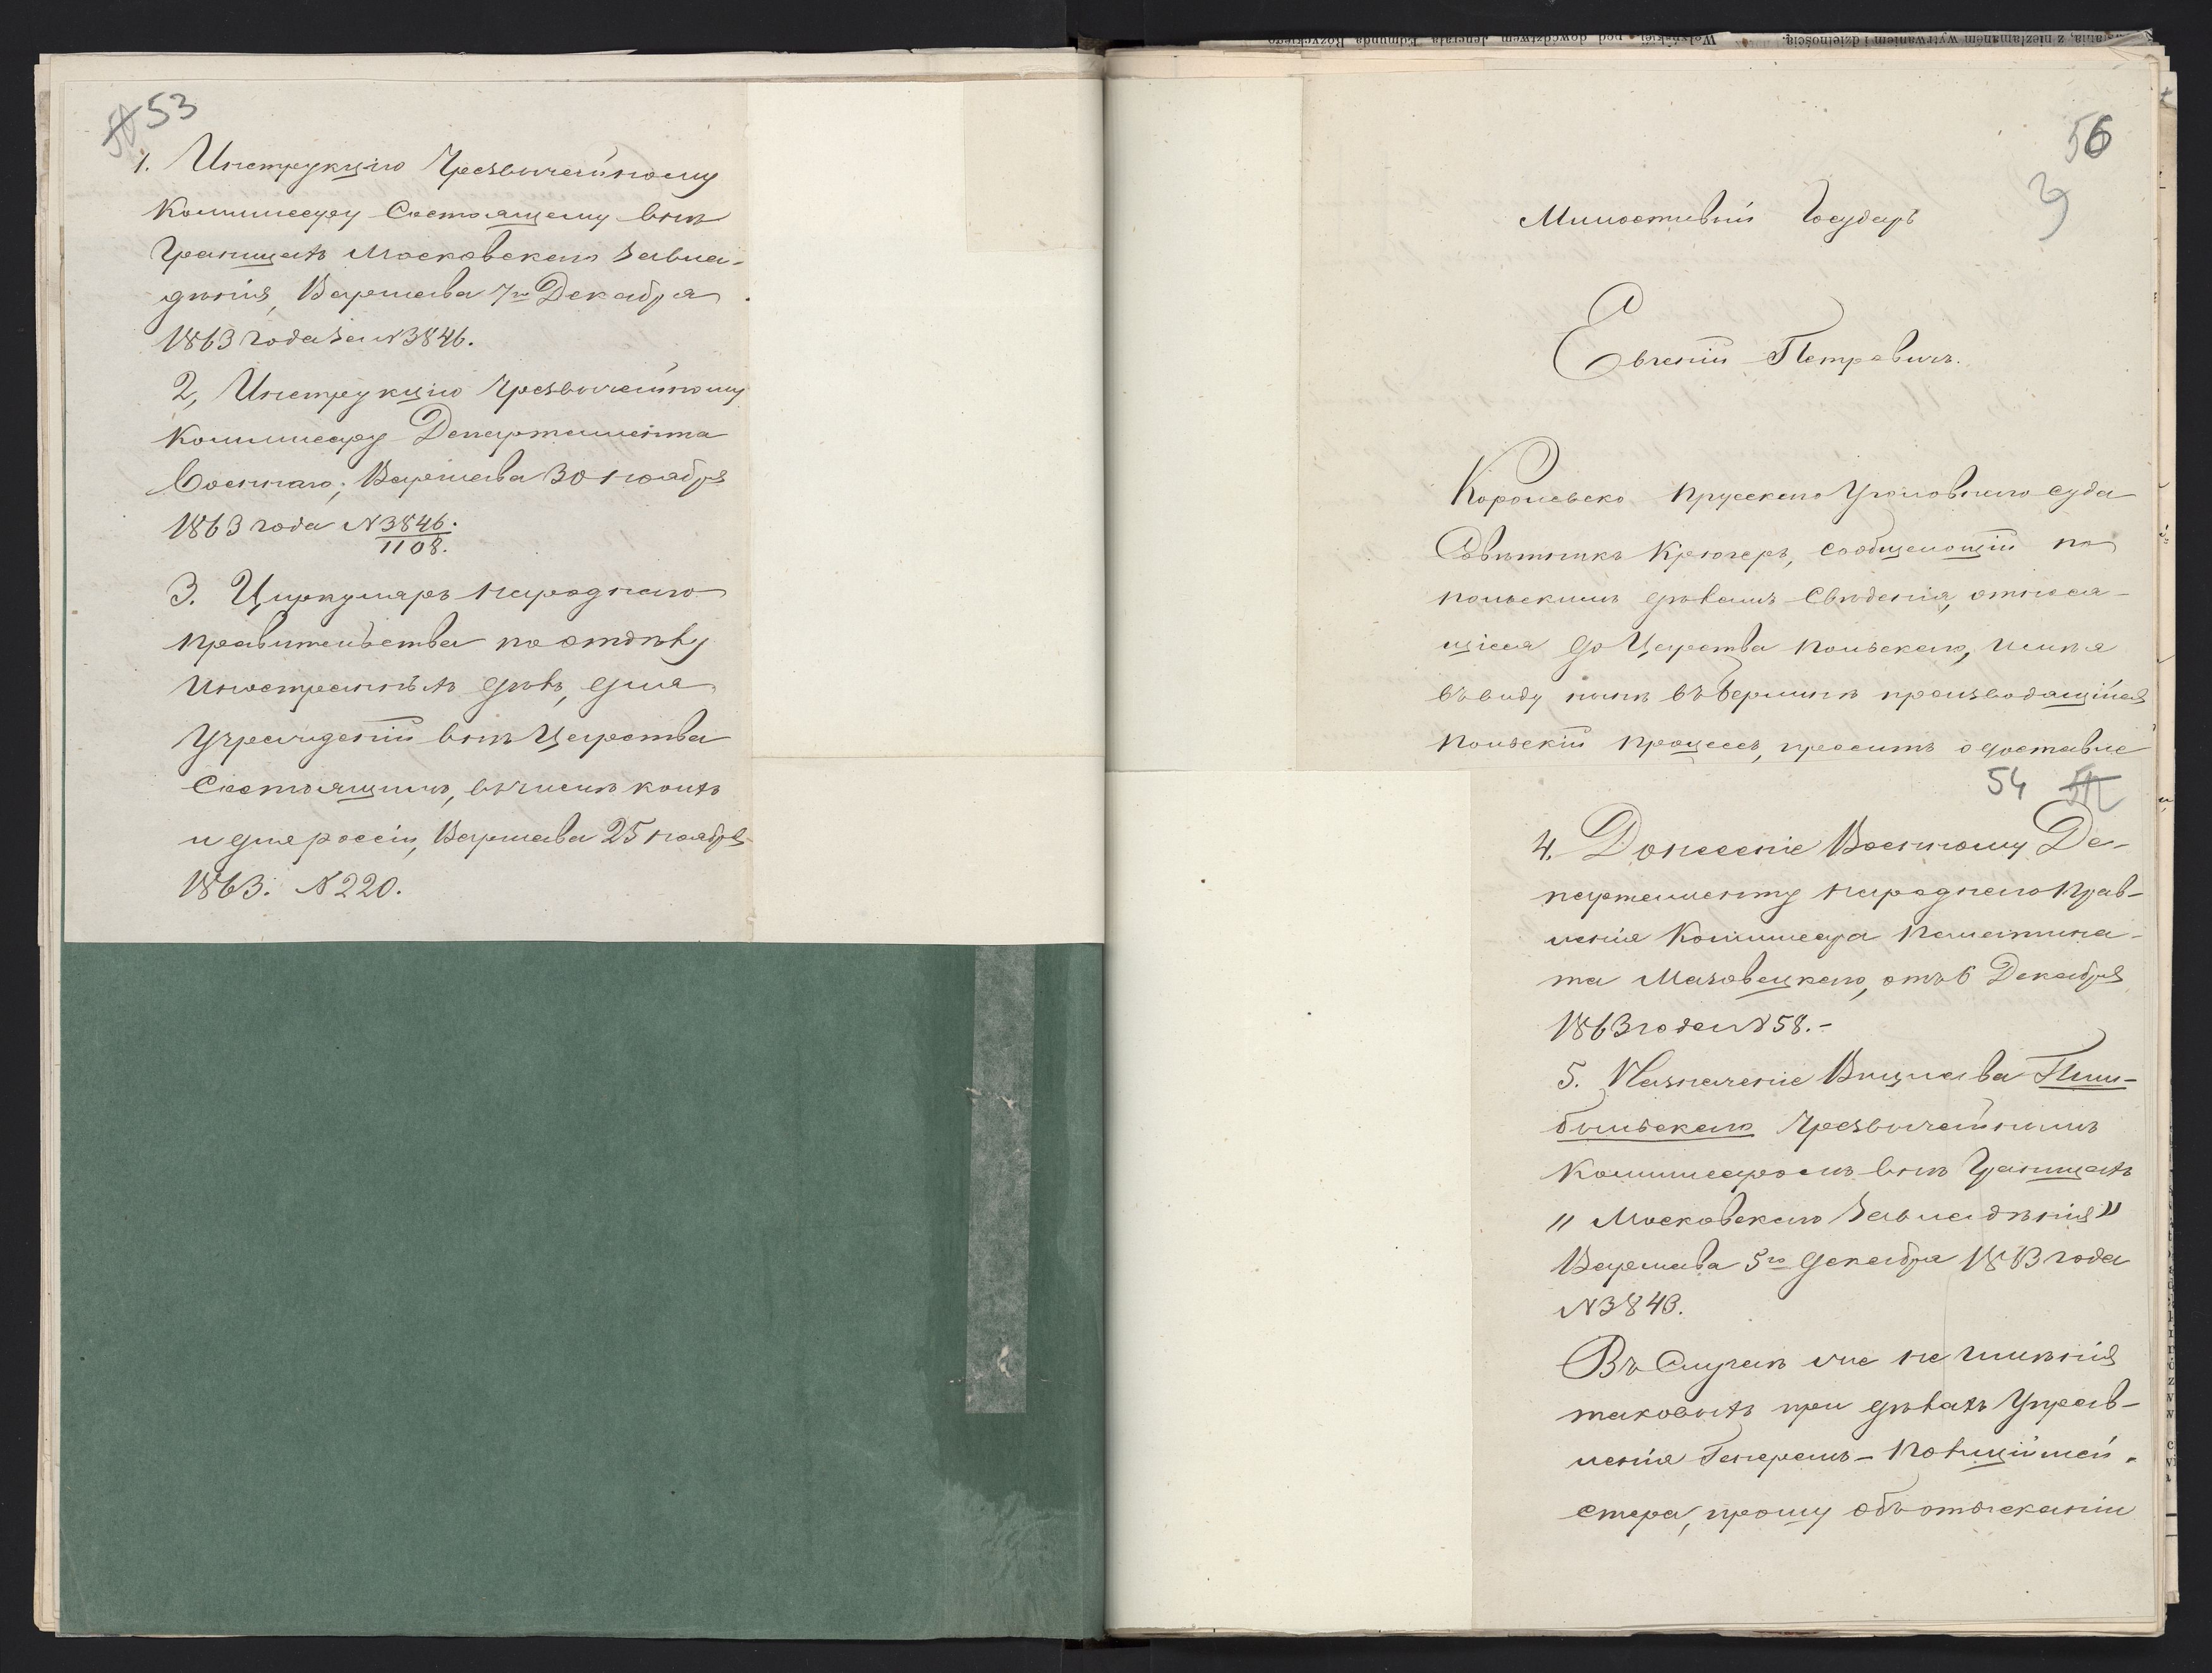 53
1. Инструкцію Чрезвычайному
Коммисару Состоящему внѣ
Границахъ Московскаго Завла-
дѣнія, Варшава 7го Декабря
1863 года за N 3846.
2, Инструкцію Чрезвычайному
Коммисару Департамента
Военнаго; Варшава 30 ноября
1863 года N 3846.
1108.
3. Циркуляръ народнаго
правительства по отдѣлу
Иностранныхъ дѣлъ, для
Учрежденій внѣ Царства
Состоящимъ, въ числѣ коихъ
и для россіи, Варшава 25 ноября
1863. N 220.
56
Милостивый Государь
Евгеній Петровичъ.
Королевско прусскаго Уголовнаго суда
Совѣтникъ Крюгеръ, сообщающій по
польскимъ дѣламъ свѣденія, относя-
щіеся до Царства польскаго, имѣя
въ виду нынѣ въ Берлинѣ производящійся
польскій процессъ, проситъ о доставле
54
4. Донесеніе Военному Де-
партаменту народнаго Прав-
ленія Коммисара Палатина-
та Мазовецкаго, отъ 6 Декабря
1863 года N 58.-
5. Назначеніе Вицлава
Чрезвычайнымъ
Коммисаромъ внѣ Границахъ
"Московскаго Завладѣнія"
Варшава 5го декабря 1863 года
N 3843.
Въ Случаѣ же не имѣнія
таковыхъ при дѣлахъ Управ-
ленія Генералъ-Полиціймей-
стера, прошу объ отысканіи